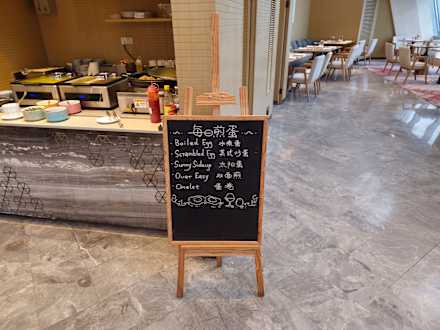 每日煎蛋
Boiled Egg 水煮蛋
Scrambled Egg 美式炒蛋
Sunny Sideup 太阳蛋
Over Easy 双面煎
Omelet 蛋卷